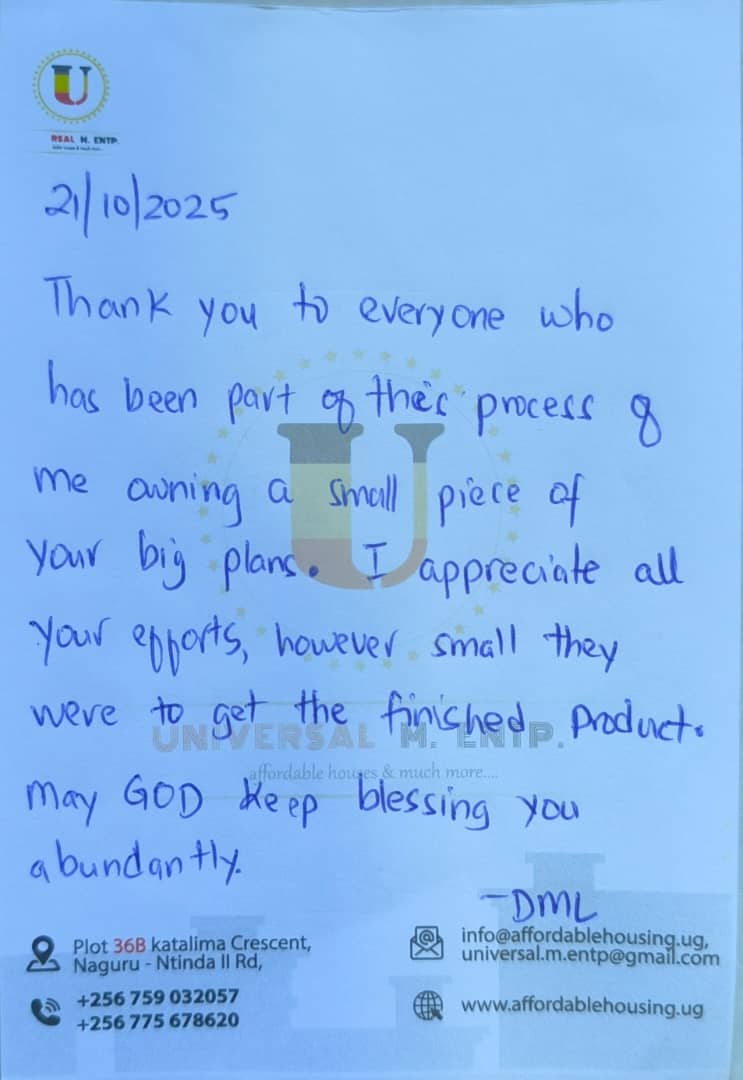 U
RSAL M. ENTP.
21/10/2025
Thank you to everyone who
has been part of this process of
me owning a small piece of
your big plans. I appreciate all
your efforts, however small they
were to get the finished product.
UNIVERSAL M. ENTP.
affordable houses & much more....
May GOD keep blessing you
abundantly.
-DML
Plot 36B katalima Crescent,
Naguru - Ntinda II Rd,
+256 759 032057
+256 775 678620
info@affordablehousing.ug,
universal.m.entp@gmail.com
www.affordablehousing.ug